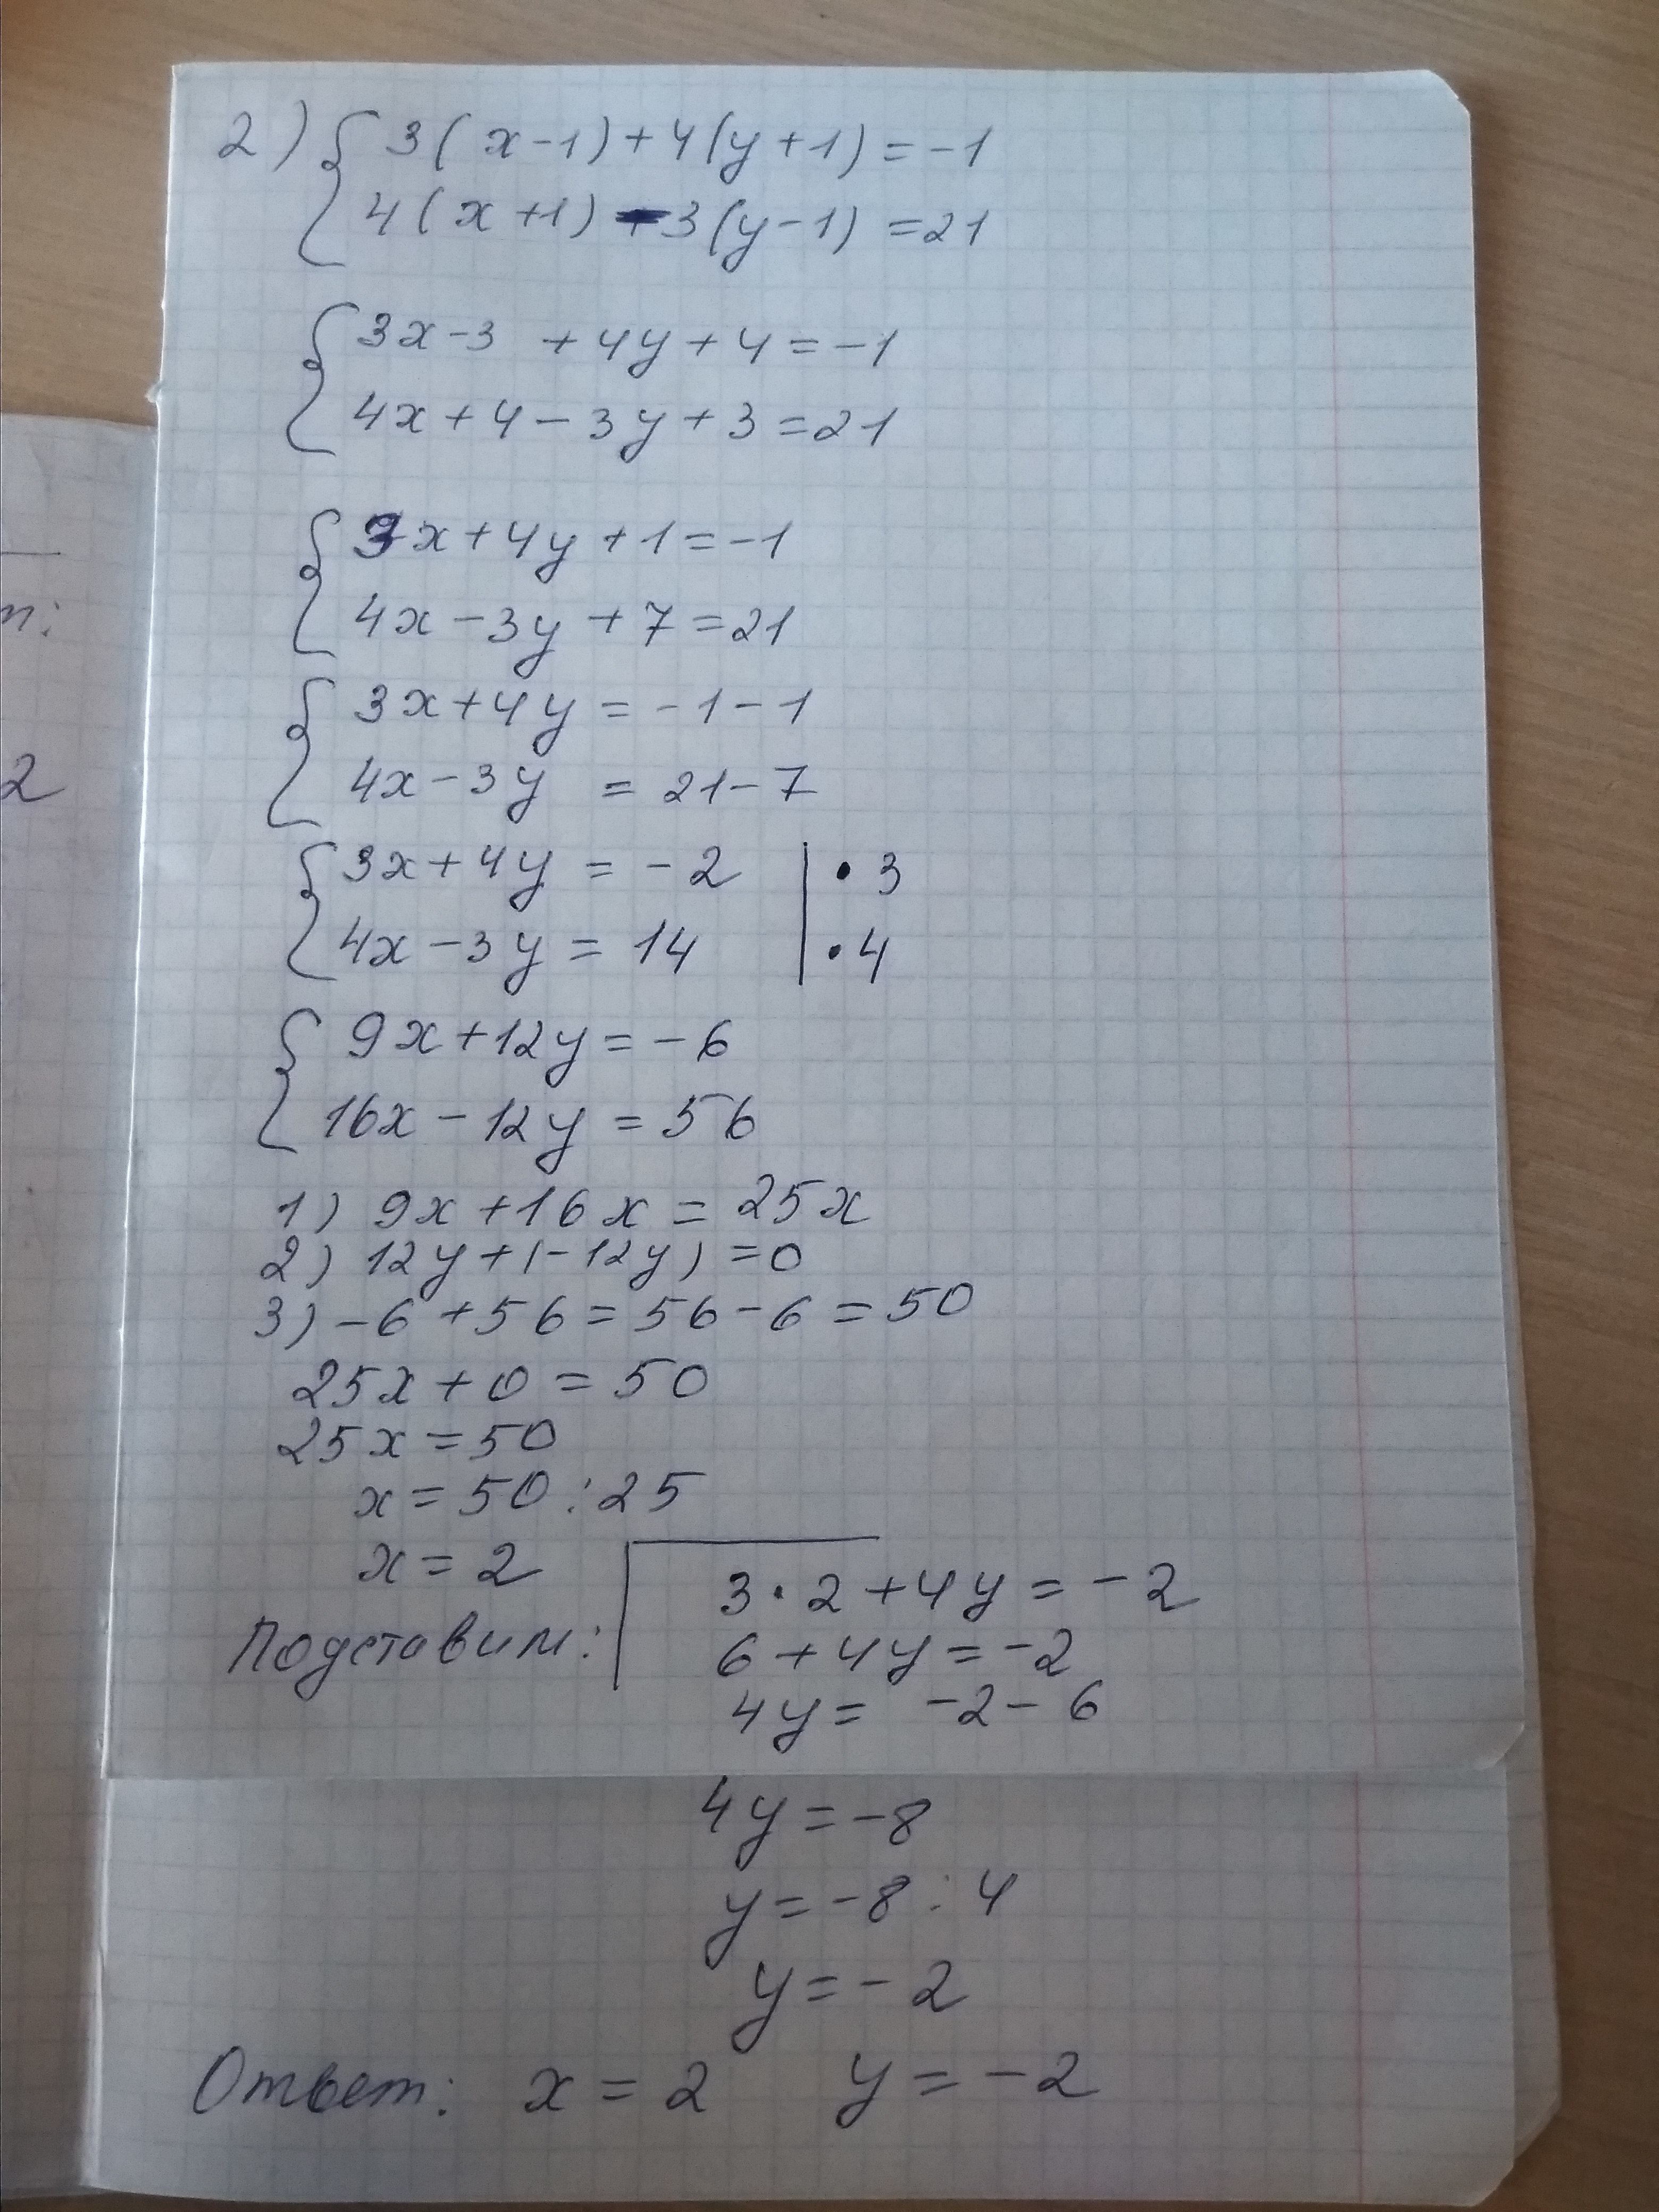 2) { 3(x-1)+4(y+1)=-1
4(x+1)-3(y-1)=21
{ 3x-3+4y+4=-1
4x+4-3y+3=21
{ 3x+4y+1=-1
4x-3y+7=21
{ 3x+4y=-1-1
4x-3y=21-7
{ 3x+4y=-2 | • 3
4x-3y=14 | • 4
{ 9x+12y=-6
16x-12y=56
1) 9x+16x=25x
2) 12y+(-12y)=0
3) -6+56=56-6=50
25x+0=50
25x=50
x=50:25
x=2
Подставим:
3·2+4y=-2
6+4y=-2
4y=-2-6
4y=-8
y=-8:4
y=-2
Ответ: x=2 y=-2
т:
2